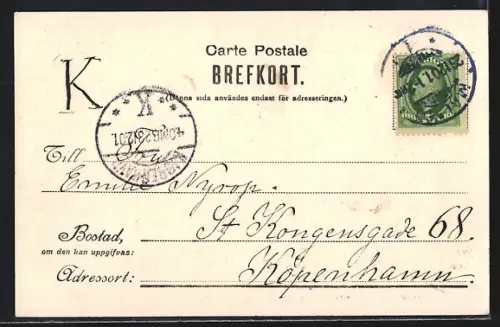 Carte Postale
BREFKORT.
(Denna sida användes endast för adresseringen.)
K
K
Till Fru
Emilie Nyrop.
St Kongensgade 68.
Bostad,
om den kan uppgifvas:
Adressort: Köpenhamn.